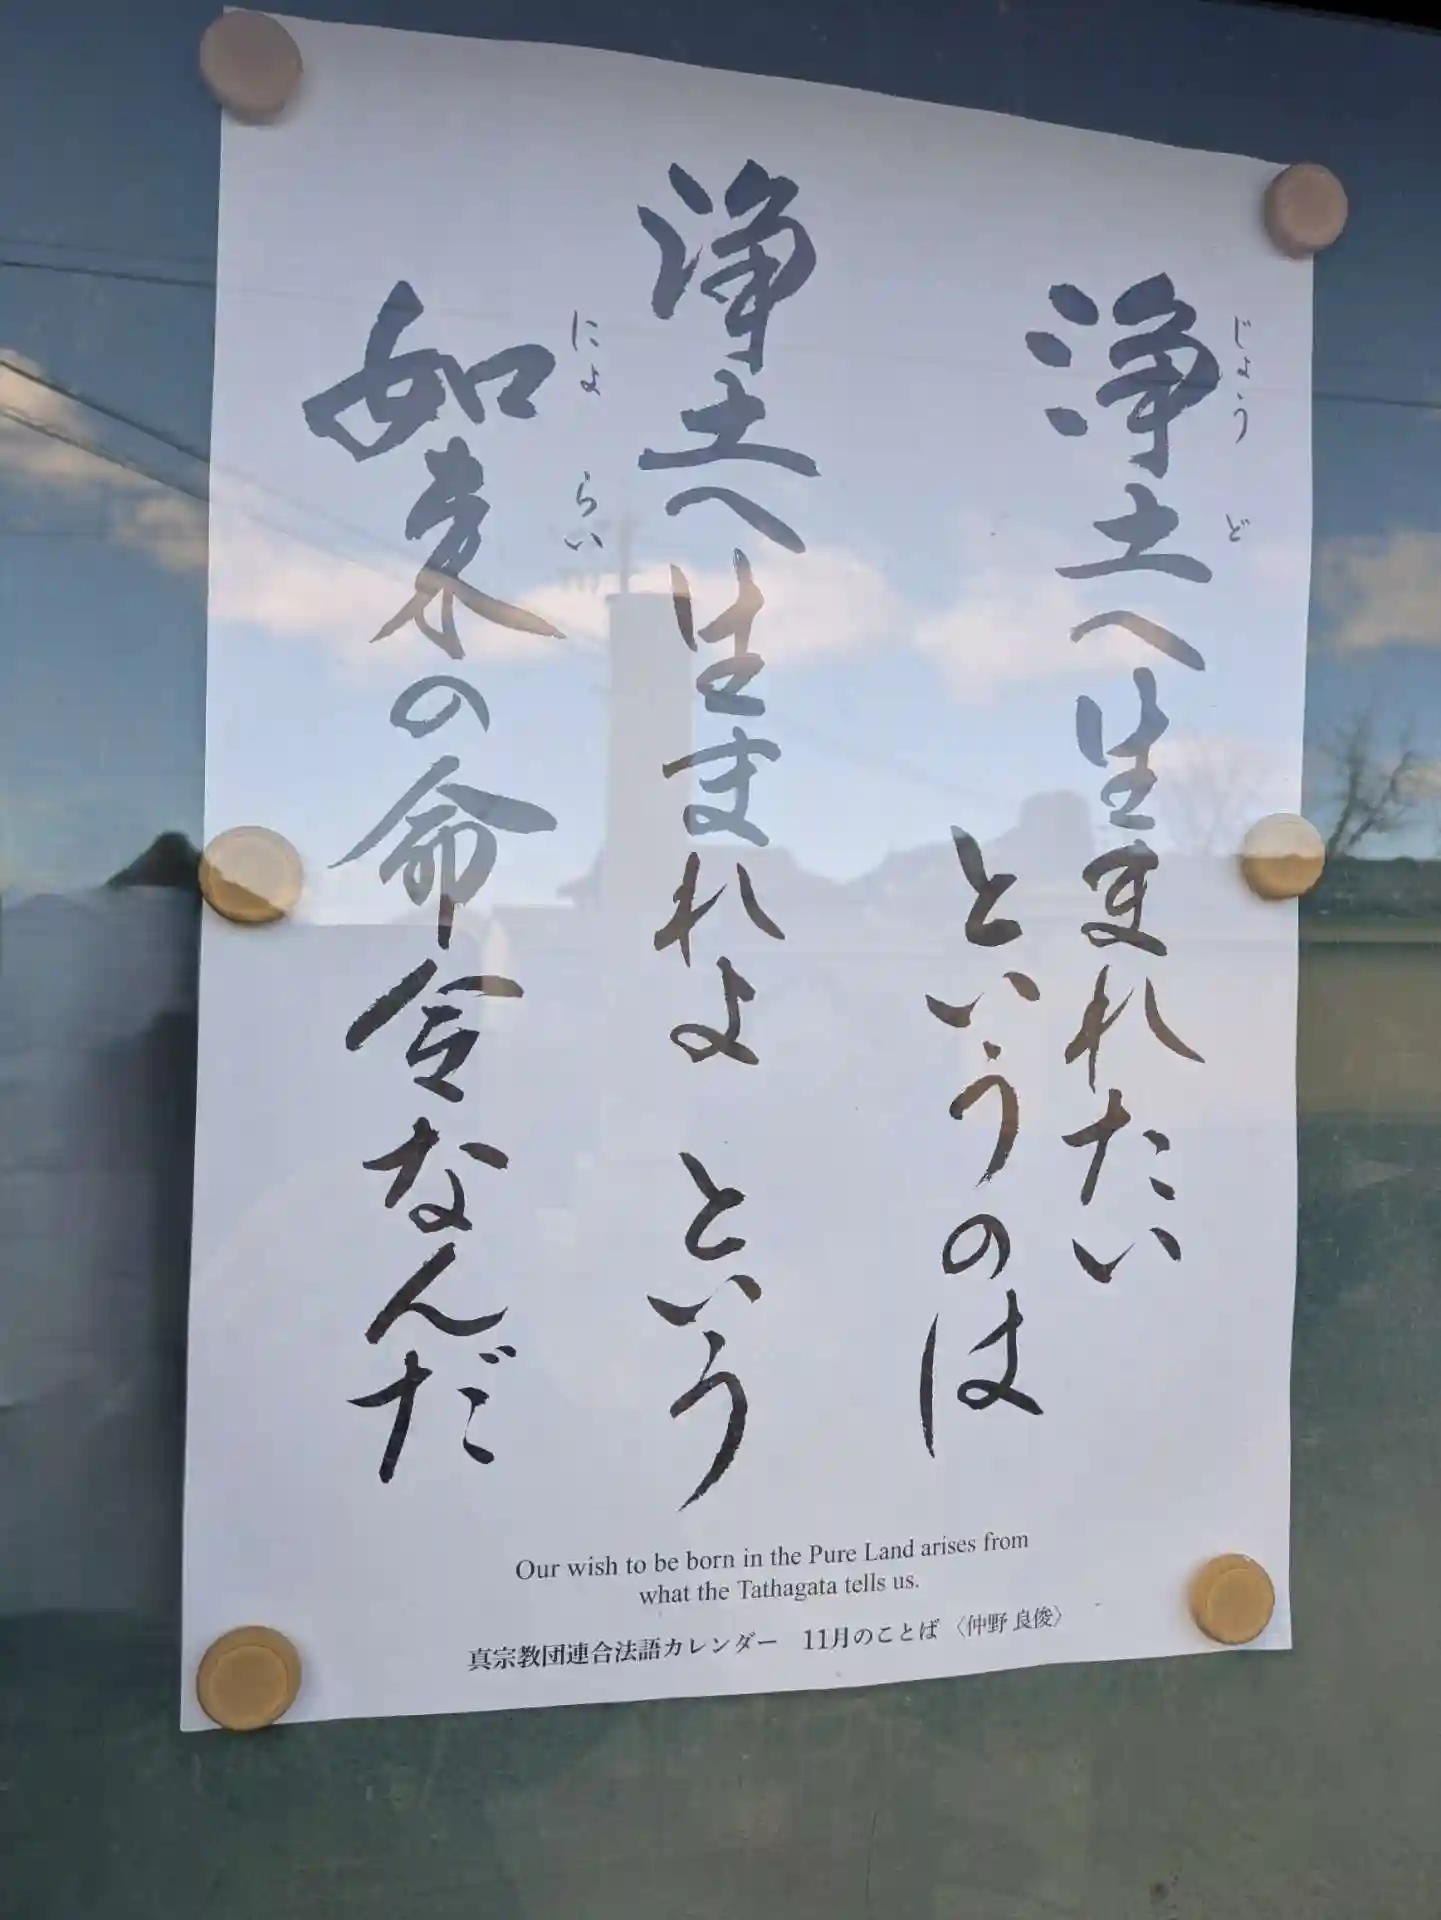 浄土へ生まれたい
じょうど
というのは
浄土へ生まれよ という
如来の命令なんだ
にょらい
Our wish to be born in the Pure Land arises from
what the Tathagata tells us.
真宗教団連合法語カレンダー 11月のことば〈仲野 良俊〉